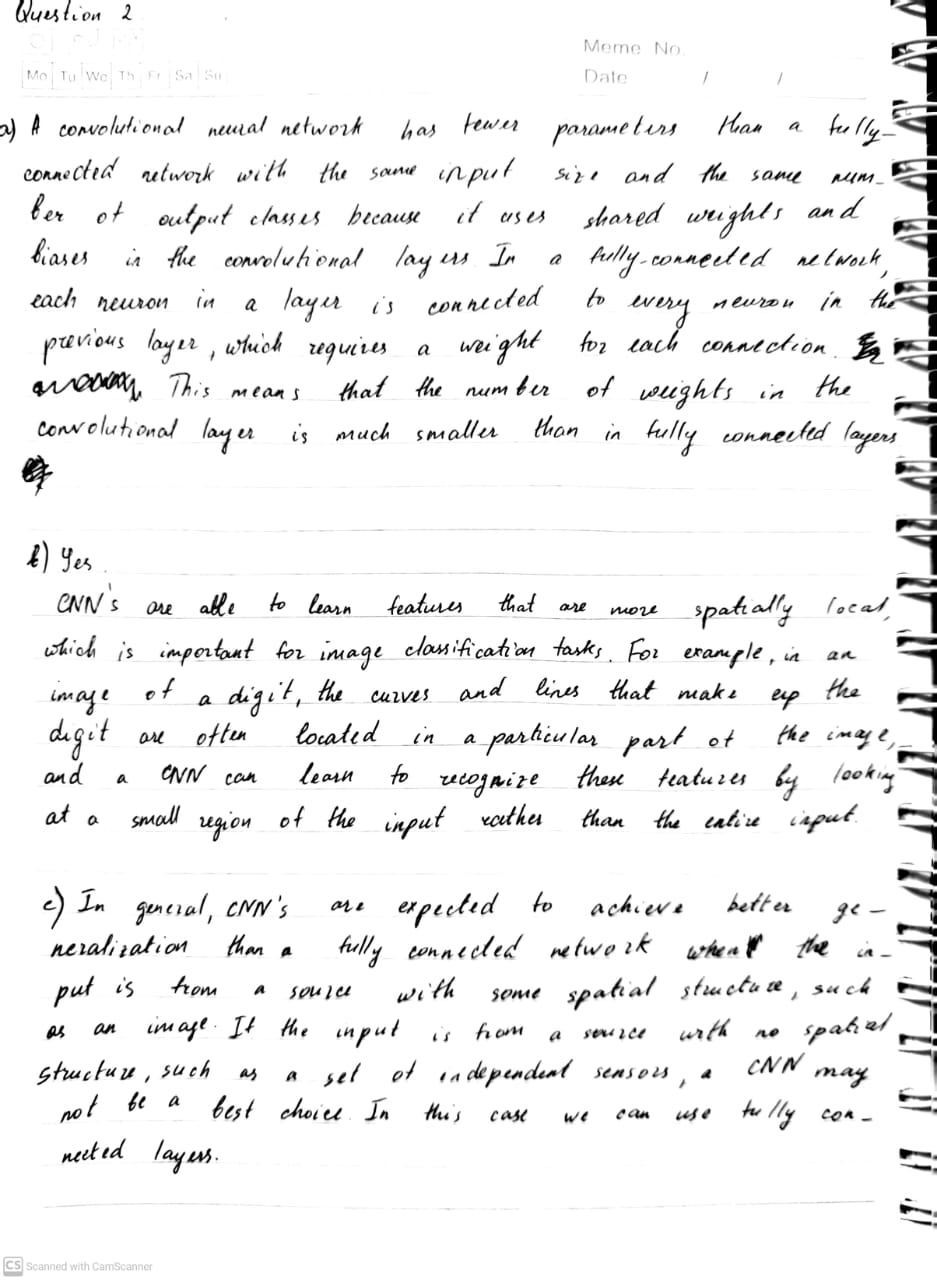 Question 2
Meme No.
Mo Tu We Th Fr Sa Su
Date / /
a) A convolutional neural network has fewer parameters than a fully-
connected network with the same input size and the same num-
ber of output classes because it uses shared weights and
biases in the convolutional layers In a fully-connected network,
each neuron in a layer is connected to every neuron in the
previous layer, which requires a weight for each connection.
This means that the number of weights in the
convolutional layer is much smaller than in fully connected layers
b) Yes.
CNN's are able to learn features that are more spatially local,
which is important for image classification tasks. For example, in an
image of a digit, the curves and lines that make up the
digit are often located in a particular part of the image,
and a CNN can learn to recognize these features by looking
at a small region of the input rather than the entire input.
c) In general, CNN's are expected to achieve better ge-
neralization than a fully connected network when the in-
put is from a source with some spatial structure, such
as an image. If the input is from a source with no spatial
structure, such as a set of independent sensors, a CNN may
not be a best choice. In this case we can use fully con-
nected layers.
CS Scanned with CamScanner